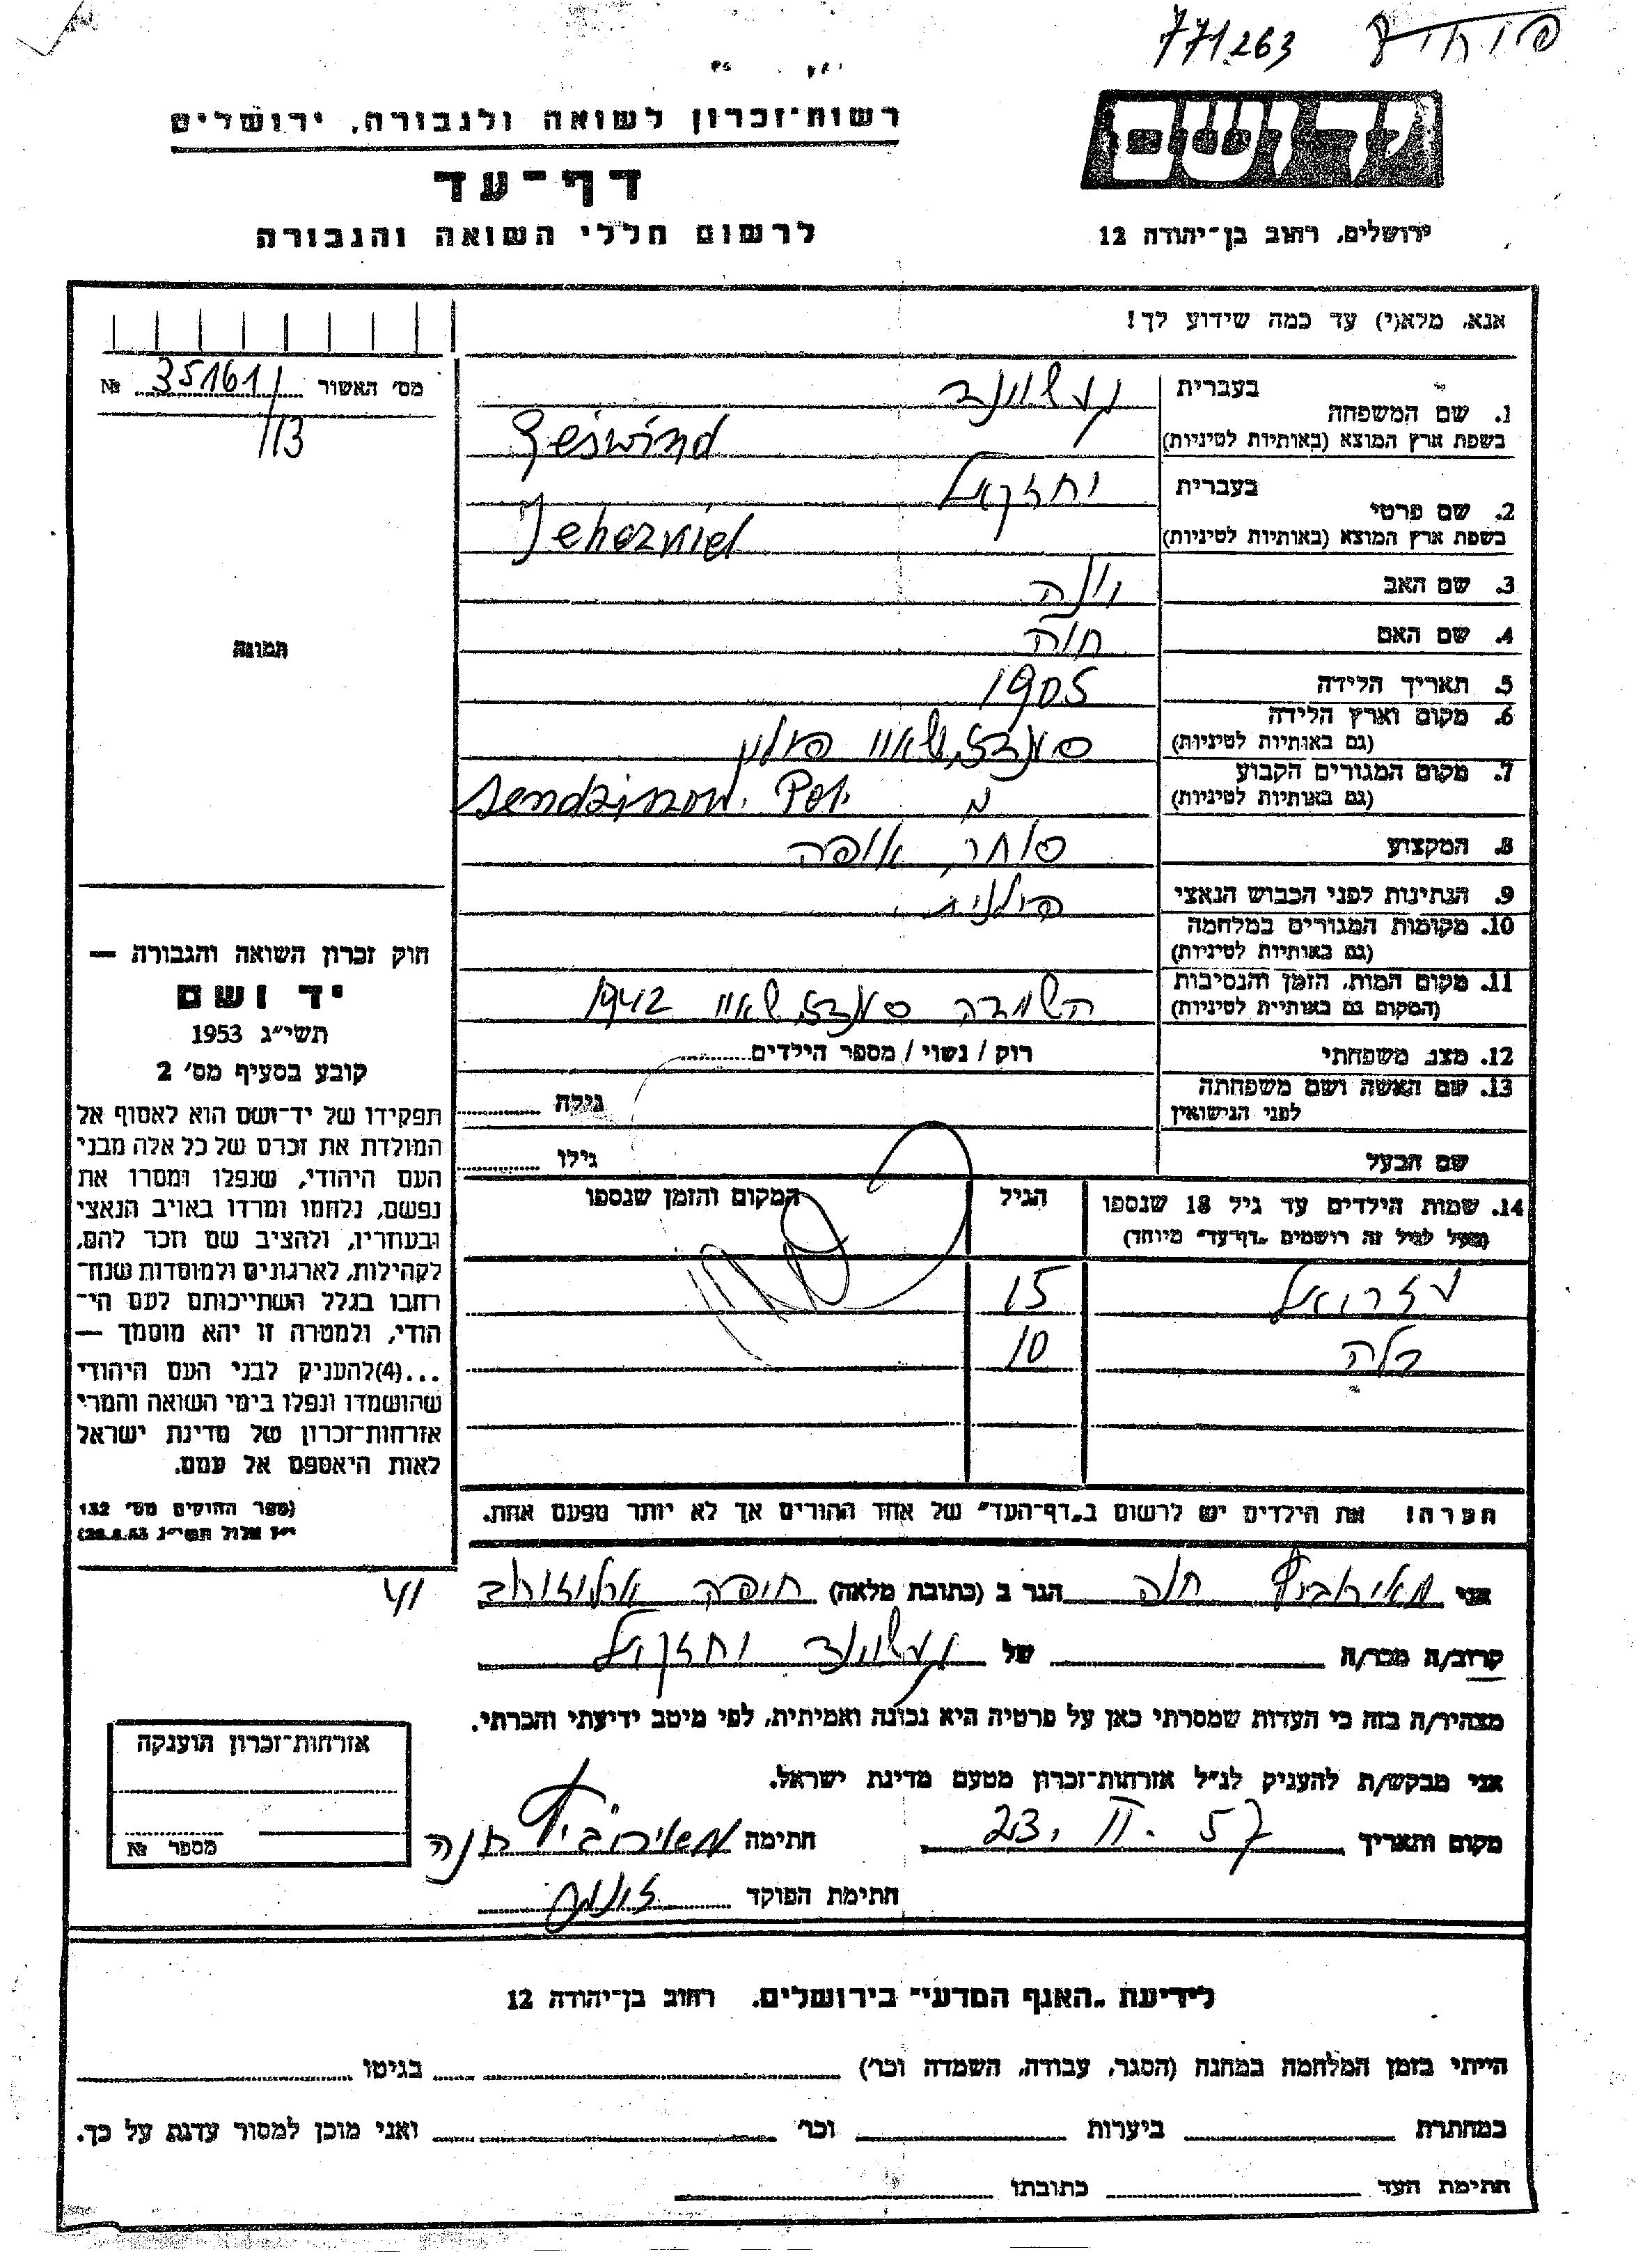 771263
רשות־זכרון לשואה ולגבורה, ירושלים
דף־עד
לרשום חללי השואה והגבורה
יד ושם
ירושלים, רחוב בן־יהודה 12
אנא, מלא(י) עד כמה שידוע לך!
מס׳ האשור 35161 №
113
תמונה
חוק זכרון השואה והגבורה —
יד ושם
תשי״ג 1953
קובע בסעיף מס׳ 2
תפקידו של יד־ושם הוא לאסוף אל
המולדת את זכרם של כל אלה מבני
העם היהודי, שנפלו ומסרו את
נפשם, נלחמו ומרדו באויב הנאצי
ובעוזריו, ולהציב שם וזכר להם,
לקהילות, לארגונים ולמוסדות שנח־
רחבו בגלל השתייכותם לעם הי־
הודי, ולמטרה זו יהא מוסמך —
...(4)להעניק לבני העם היהודי
שהושמדו ונפלו בימי השואה והמרי
אזרחות־זכרון של מדינת ישראל
לאות היאספם אל עמם.
(ספר החוקים מס׳ 132
י״ז אלול תשי״ג 28.8.53)
בעברית געשווינד
1. שם המשפחה
בשפת ארץ המוצא (באותיות לטיניות) Geswind
בעברית יחזקאל
2. שם פרטי
בשפת ארץ המוצא (באותיות לטיניות) Jehezkiel
3. שם האב יונה
4. שם האם חוה
5. תאריך הלידה 1905
6. מקום וארץ הלידה
(גם באותיות לטיניות) פולין
7. מקום המגורים הקבוע
(גם באותיות לטיניות) Sendzinow. Pol.
8. המקצוע סוחר, אופה
9. הנתינות לפני הכבוש הנאצי פולנית.
10. מקומות המגורים במלחמה
(גם באותיות לטיניות)
11. מקום המות, הזמן והנסיבות
(המקום גם באותיות לטיניות) השמדה 1942
12. מצב משפחתי רוק / נשוי / מספר הילדים
13. שם האשה ושם משפחתה
לפני הנישואין גילה
שם הבעל גילו
14. שמות הילדים עד גיל 18 שנספו הגיל המקום והזמן שנספו
(מעל לגיל זה רושמים „דף־עד״ מיוחד)
עזריאל 15
בלה 10
הערה! את הילדים יש לרשום ב„דף־העד״ של אחד ההורים אך לא יותר מפעם אחת.
אני מאירוביץ חנה הגר ב (כתובת מלאה) חיפה ארלוזורוב 41
קרוב/ה מכר/ה של געשווינד יחזקאל
מצהיר/ה בזה כי העדות שמסרתי כאן על פרטיה היא נכונה ואמיתית, לפי מיטב ידיעתי והכרתי.
אני מבקש/ת להעניק לנ״ל אזרחות־זכרון מטעם מדינת ישראל.
מקום ותאריך 23. II. 57 חתימה מאירוביץ חנה
חתימת הפוקד
אזרחות־זכרון הוענקה
מספר №
לידיעת „האגף המדעי״ בירושלים. רחוב בן־יהודה 12
הייתי בזמן המלחמה במחנה (הסגר, עבודה, השמדה וכו׳) בגיטו
במחתרת ביערות וכו׳ ואני מוכן למסור עדות על כך.
חתימת העד כתובתו